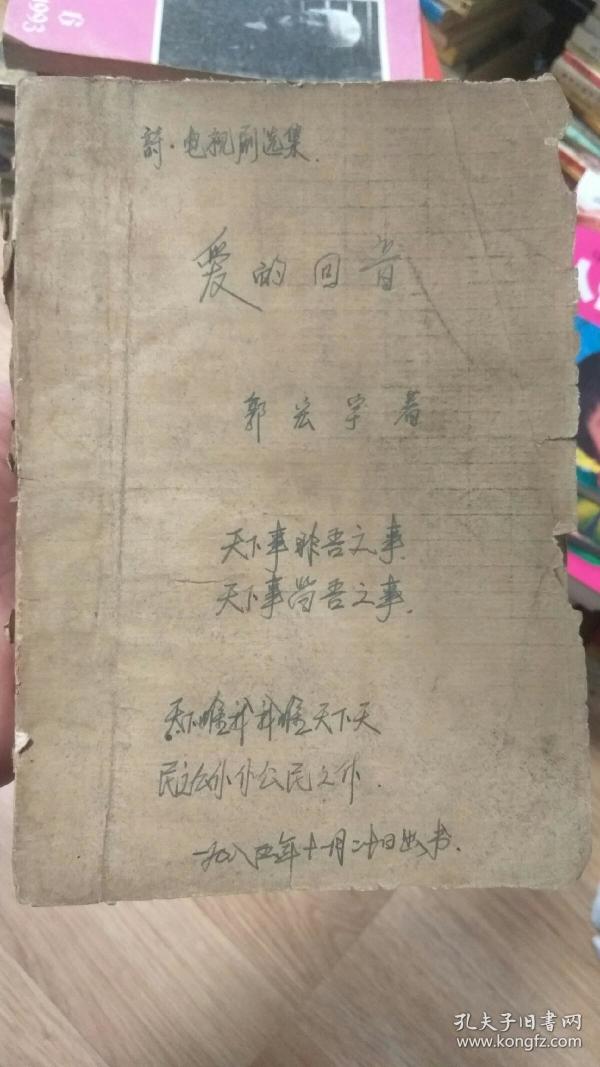 6
1993
詩·电视剧选集.
爱的回音
郭宏宇著
天下事昨吾之事.
天下事当吾之事.
天下唯我我唯天下天
民之
公民之仆.
一九八五年十一月二十日出书.
孔夫子旧书网
www.kongfz.com